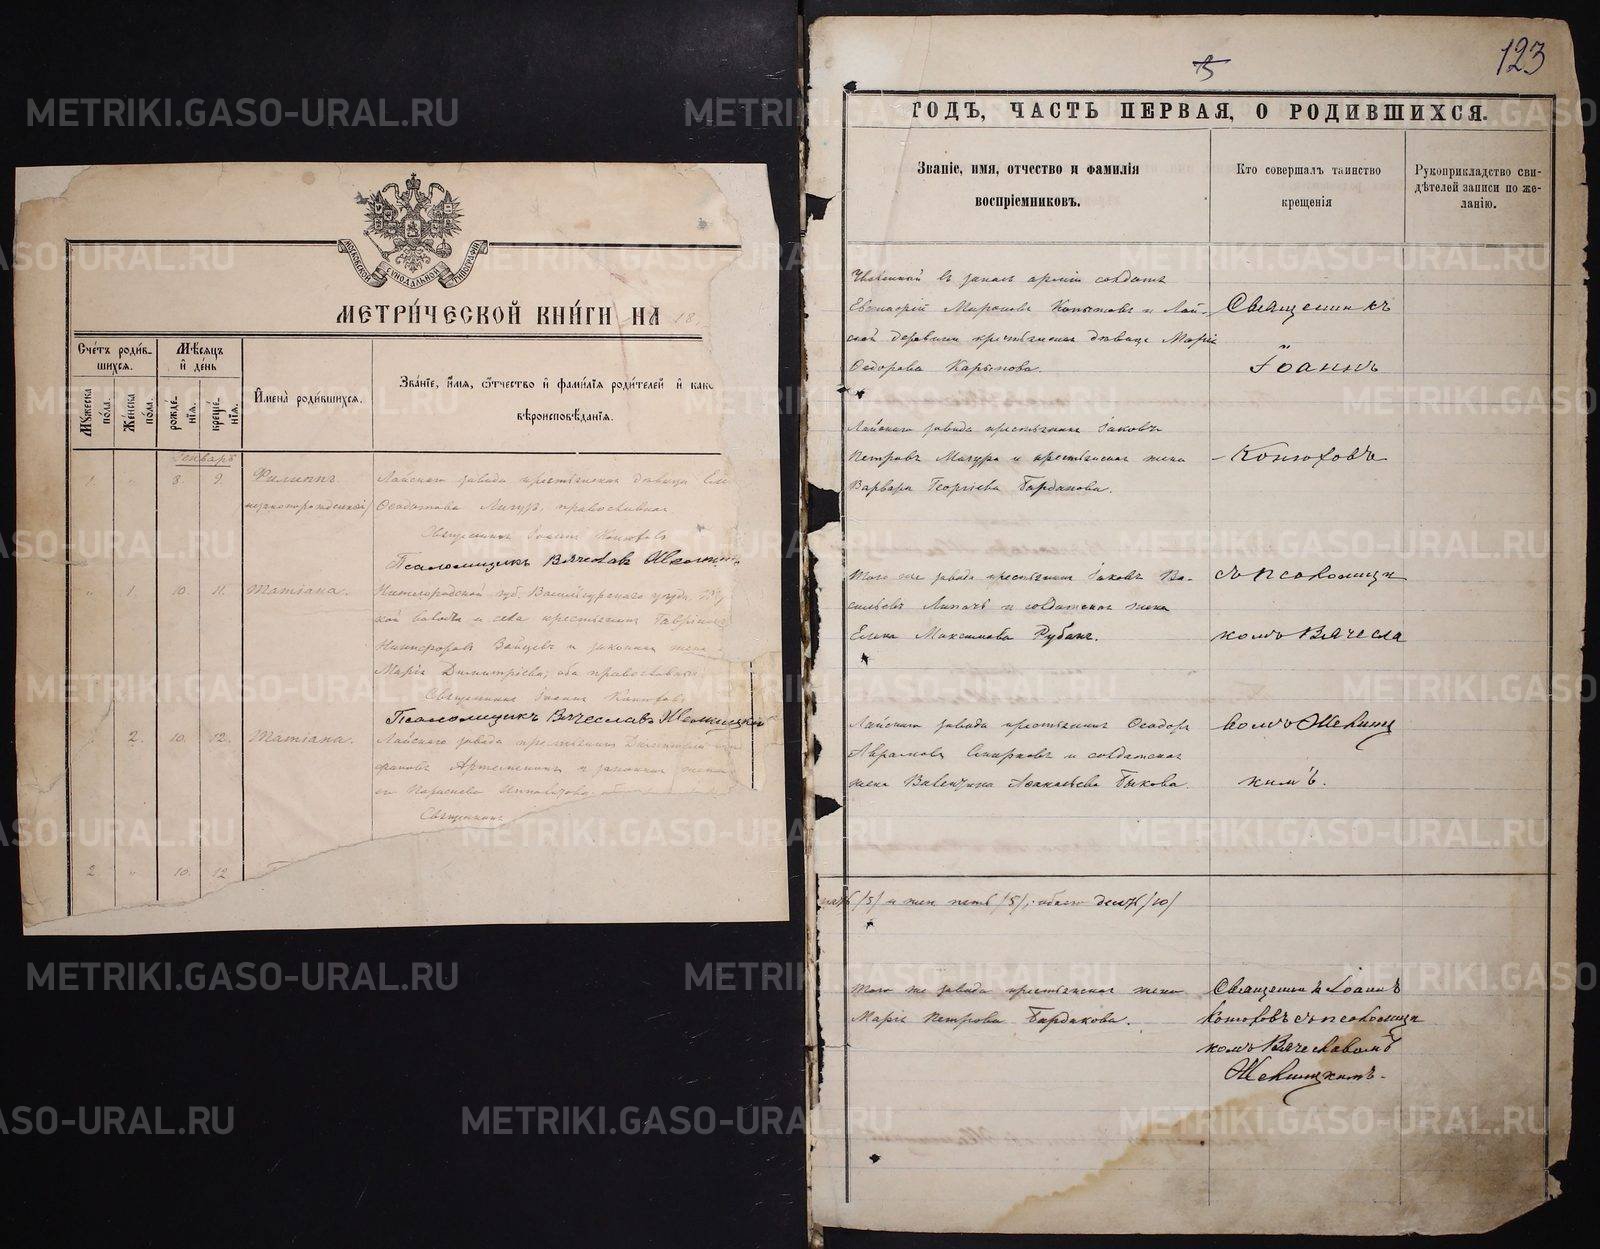 МОСКОВСКОЙ СѴНОДАЛЬНОЙ ТИПОГРАФІИ
МЕТРИ́ЧЕСКОЙ КНИ́ГИ НА 18
Сче́тъ роди́в-
шихся.
Му́жеска по́ла.
Же́нска по́ла.
Мѣ́сяцъ и де́нь
рожде́-
нія.
креще́-
нія.
Имена̀ роди́вшихся.
Зва́ніе, и́мя, о́тчество и фами́лія роди́телей и како
вѣроисповѣ́данія.
Генварь
1. " 8. 9. Филиппъ
незаконорожденный
Лайскаго завода крестьянская дѣвица
Ѳеодотова православная
Священникъ Іоаннъ Конюховъ
Псаломщикъ Вячеславъ
" 1. 10. 11. Татіана.
Нижегородской губ. Васильсурскаго уѣзда
села крестьянинъ Гавріилъ
Никифоровъ Зайцевъ и законная жена
Марія Димитріева, оба православные
Священникъ Іоаннъ Конюховъ
Псаломщикъ Вячеславъ
2. 10. 12. Татіана.
Лайскаго завода крестьянинъ Димитрій
и законная жена
его
Священникъ
2 " 10. 12
123
ГОДЪ, ЧАСТЬ ПЕРВАЯ, О РОДИВШИХСЯ.
Званіе, имя, отчество и фамилія
воспріемниковъ.
Кто совершалъ таинство
крещенія
Рукоприкладство сви-
дѣтелей записи по же-
ланію.
Уволенный въ запасъ арміи солдатъ
Мироновъ Копытовъ и Лай-
ской деревни крестьянская дѣвица Марія
Ѳедорова Карпова.
Священникъ
Іоаннъ
Лайскаго завода крестьянинъ Іаковъ
Петровъ Мазура и крестьянская жена
Варвара Георгіева Бардакова.
Конюховъ
Того же завода крестьянинъ Іаковъ Ва-
сильевъ и солдатская жена
Елена Максимова Рубанъ.
съ псаломщи
комъ Вячесла
Лайскаго завода крестьянинъ Ѳеодоръ
Аврамовъ Смирновъ и солдатская
жена Валентина Быкова.
вомъ
кимъ.
/5/ и жен. пять /5/, обоего десять /10/
Того же завода крестьянская жена
Марія Петрова Бардакова.
Священникъ Іоаннъ
Конюховъ съ псаломщи
комъ Вячеславомъ
METRIKI.GASO-URAL.RU